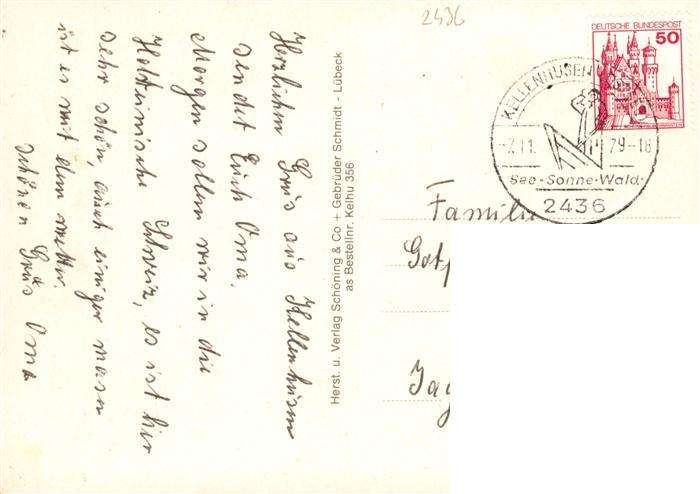 2436
Herzlichen Grüs aus Kellenhusen
sendet Euch Oma.
Morgen sollen wir in die
Holsteinische Schweiz, es ist hir
sehr schön, auch einiger masen
ist es mit dem wetter.
schönen Grüs Oma
Herst. u. Verlag Schöning & Co + Gebrüder Schmidt - Lübeck
as Bestellnr. Kelhu 356
DEUTSCHE BUNDESPOST
50
KELLENHUSEN
-7.11. 79-18
See-Sonne-Wald
2436
Familie